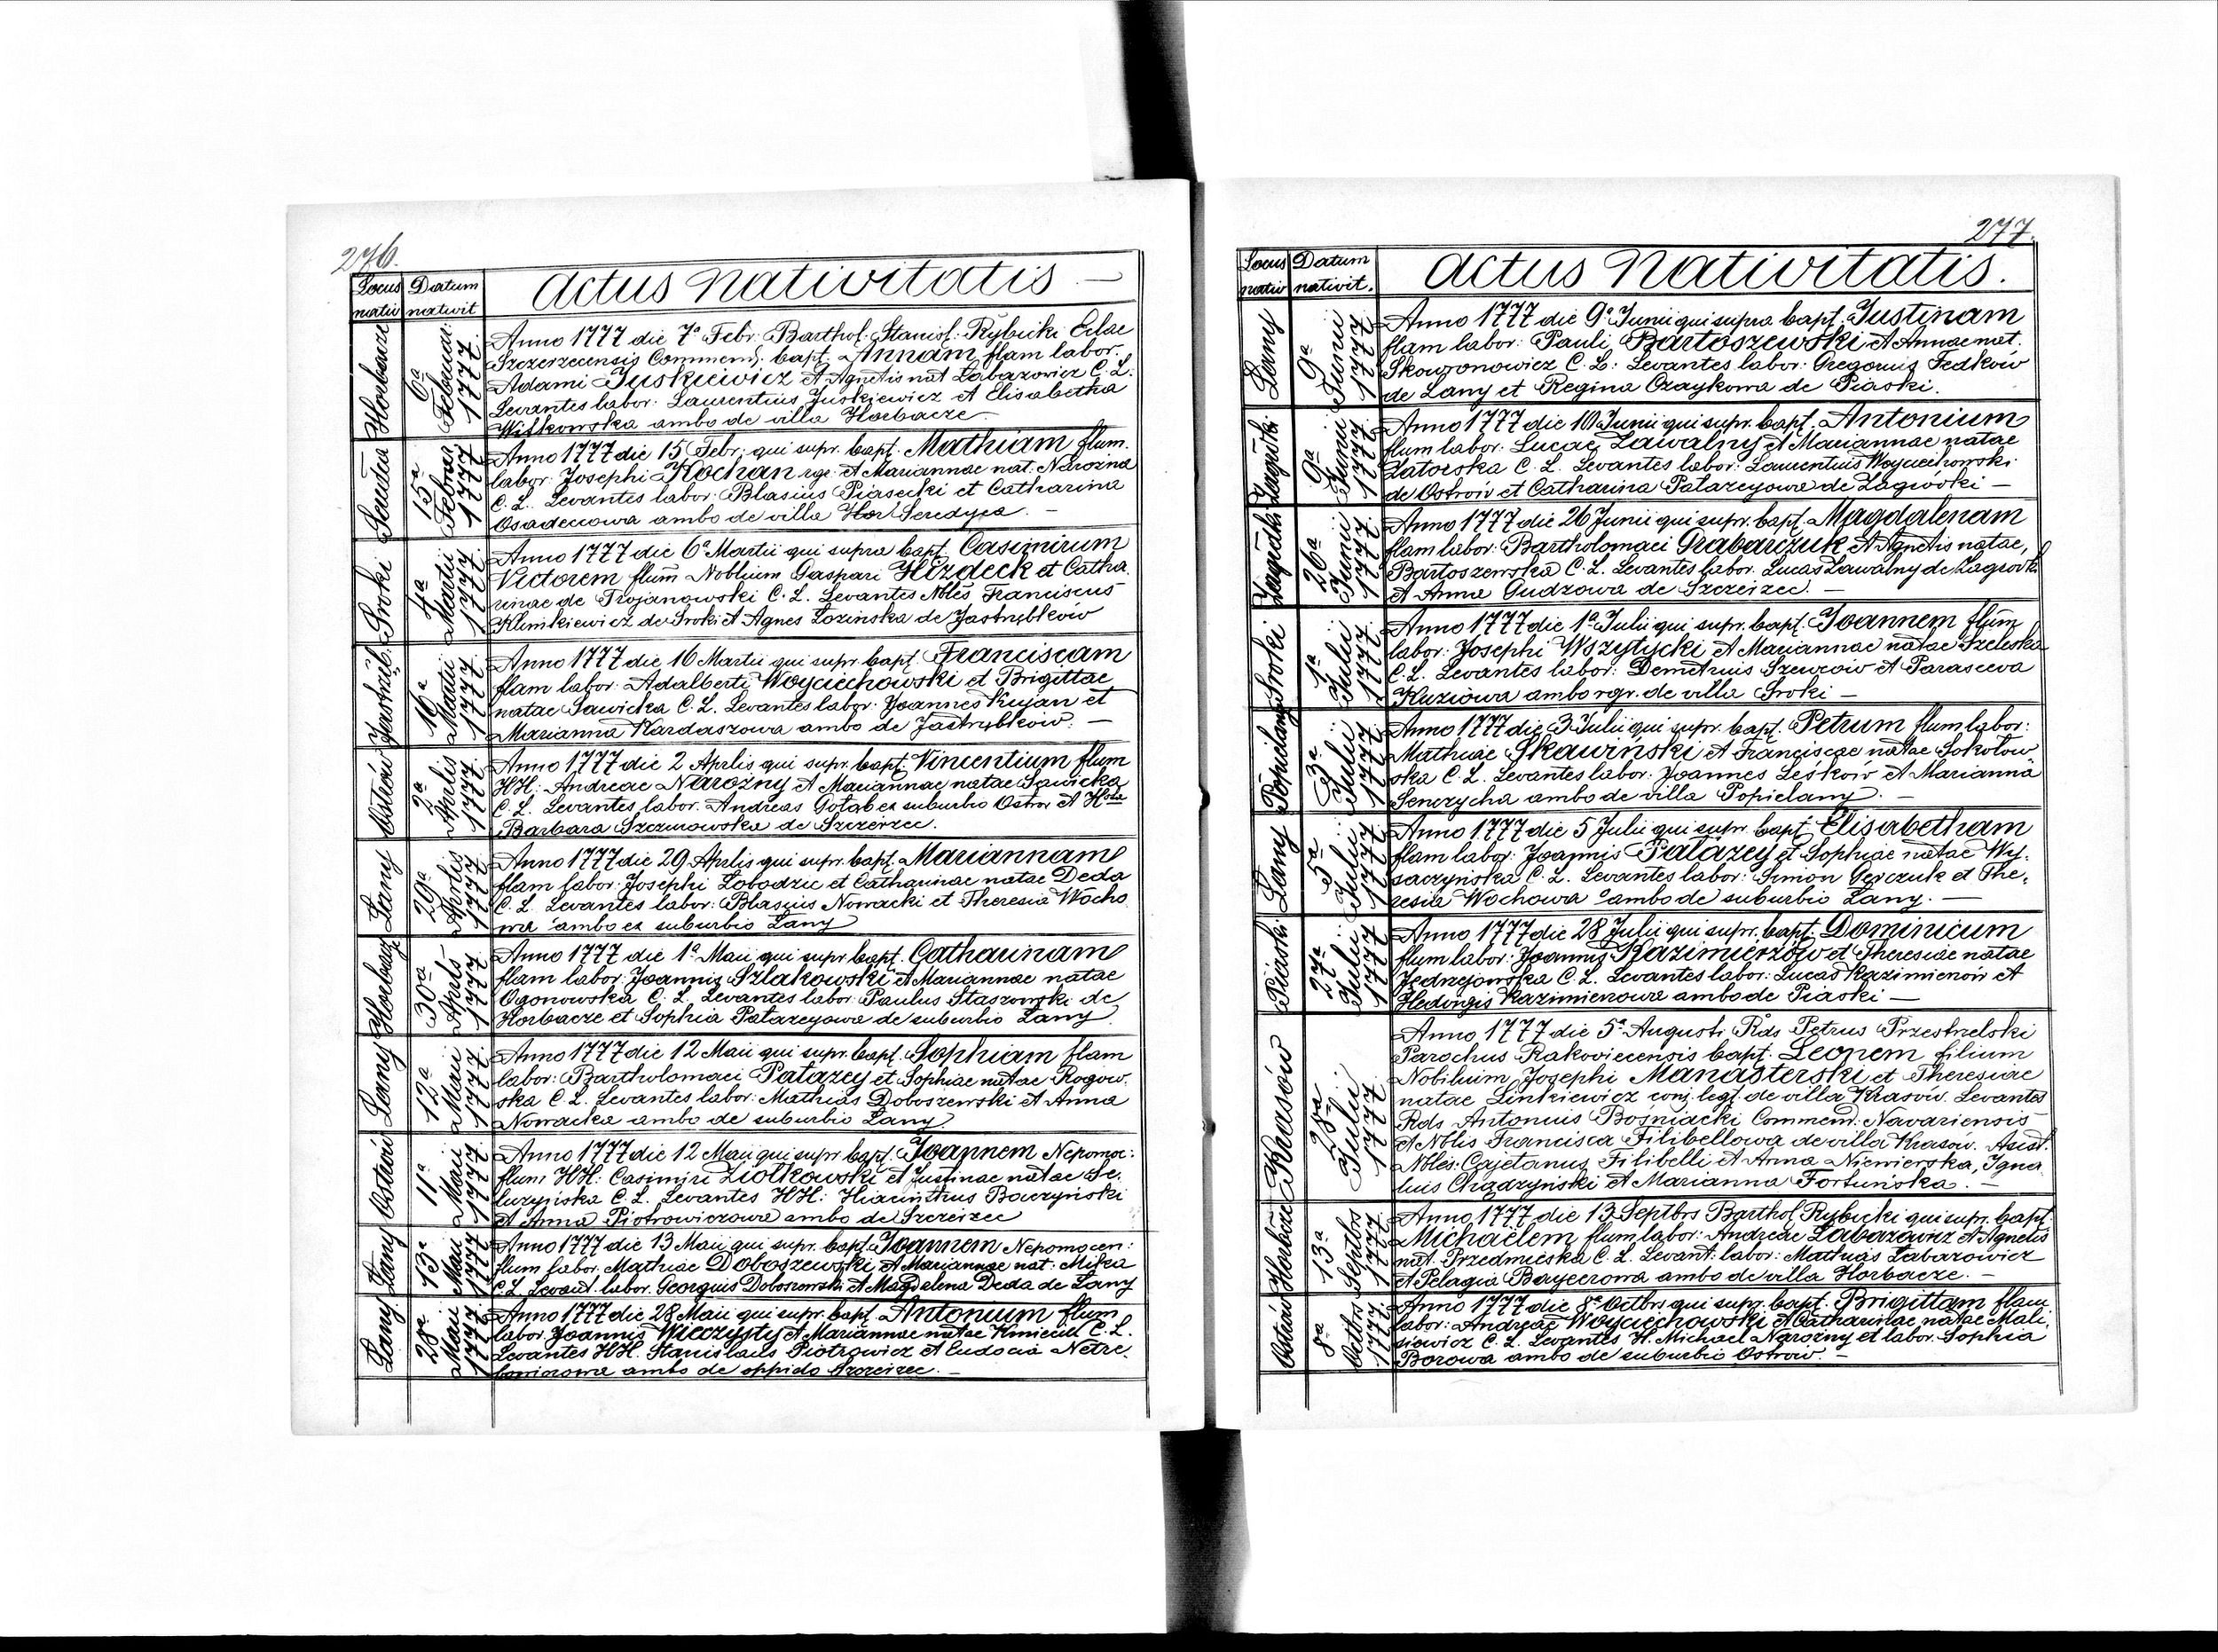 276.
Locus nativ
Datum nativit
Actus Nativitatis —
Horbacze
6ª Februar. 1777
Anno 1777 die 7ª Febr: Barthol: Stanisl: Rybicki Eclae
Szczerzecensis Commend; bapt. Annam flam labor.
Adami Juskiewicz et Agnetis nat Labazowicz C. L.
Levantes labor: Laurentius Juskiewicz et Elisabetha
Witkowska ambo de villa Horbacze —
15ª Februar 1777
Anno 1777 die 15 Febr: qui supr. bapt. Mathiam flum.
labor: Josephi Kochan rgr. et Mariannae nat. Narożna
C. L. Levantes labor: Blasius Piasecki et Catharina
Osadcowa ambo de villa Hor Seredyca. —
Sroki
4ª Martii 1777
Anno 1777 die 6ª Martii qui supra bapt. Casimirum
Victorem flum Noblium Gaspari Hözdeck et Catha
rinae de Trojanowski C. L. Levantes Nbles Franciscus
Klimkiewicz de Sroki et Agnes Lozinska de Jastrębków
16ª Martii 1777
Anno 1777 die 16 Martii qui supr. bapt. Franciscam
flam labor: Adalberti Woyciechowski et Brigittae
natae Sawicka C. L. Levantes labor: Joannes Kujan et
Marianna Kardaszowa ambo de Jastrębków. —
Ostrów
2ª Aprlis 1777
Anno 1777 die 2 Aprlis qui supr. bapt. Vincentium flum
HH: Andreae Narożny et Mariannae natae Sawicka
C. L. Levantes labor. Andreas Gołąb ex suburbio Ostrow et Hsta
Barbara Szczurowska de Szczerzec.
Lany
29ª Aprlis 1777
Anno 1777 die 29 Aprlis qui supr. bapt. Mariannam
flam labor: Josephi Lobodzic et Catharinae natae Deda
C. L. Levantes labor: Blasius Nowacki et Theresia Wocho
wa ambo ex suburbio Lany
Horbacz
30ª Aprlis 1777
Anno 1777 die 1ª Maii qui supr bapt. Catharinam
flam labor: Joannis Szlakowski et Mariannae natae
Ogonowska C. L. Levantes labor: Paulus Staszowski de
Horbacze et Sophia Patazeyowa de suburbio Lany
Lany
12ª Maii 1777
Anno 1777 die 12 Maii qui supr. bapt. Sophiam flam
labor: Bartholomaei Patazey et Sophiae natae Rogow.
ska C. L. Levantes labor: Mathias Doboszewski et Anna
Nowacka ambo de suburbio Lany
Ostrów
11ª Maii 1777
Anno 1777 die 12 Maii qui supr. bapt. Joannem Nepomoc:
flum HH: Casimiri Ziolkowski et Justinae natae Be,
luzyńska C. L. Levantes HH: Hiacinthus Bowzyński
et Anna Piotrowiczowa ambo de Szczerzec
Lany
13ª Maii 1777
Anno 1777 die 13 Maii qui supr. bapt. Joannem Nepomocen:
flum labor. Mathiae Doboszewski et Mariannae nat: Mika
C. L. Levant. labor. Georgius Doboszewski et Magdalena Deda de Lany
Lany
28ª Maii 1777
Anno 1777 die 28 Maii qui supr. bapt. Antonium flum
labor. Joannis Wieczysty et Mariannae natae Kmieciu C. L.
Levantes HH. Stanislaus Piotrowicz et Eudocia Netre.
bowiczowa ambo de oppido Szczerzec. —
277.
Locus nativ
Datum nativit.
Actus Nativitatis.
Lany
9ª Junii 1777
Anno 1777 die 9ª Junii qui supra bapt. Justinam
flam labor: Pauli Bartoszewski et Annae nat.
Skowronowicz C. L: Levantes labor: Gregorius Fedków
de Lany et Regina Czaykowa de Piaski.
Zagródki
9ª Junii 1777
Anno 1777 die 10 Junii qui supr. bapt. Antonium
flum labor: Lucae Zawalny et Mariannae natae
Zatorska C. L. Levantes labor: Laurentius Woyciechowski
de Ostrów et Catharina Patazeyowa de Zagródki —
Zagródki
26ª Junii 1777
Anno 1777 die 26 Junii qui supr. bapt. Magdalenam
flam labor: Bartholomaei Grabarczuk et Agnetis natae,
Bartoszewska C. L. Levantes labor. Lucas Zawalny de Zagrodk
et Anna Gudzowa de Szczerzec. —
Sroki
1ª Julii 1777
Anno 1777 die 1ª Julii qui supr. bapt. Joannem flum
labor: Josephi Wszytycki et Mariannae natae Szeleska
C. L. Levantes labor: Demetrius Szewców et Parasceva
Kuziowa ambo rgr. de villa Sroki —
Popielany
3ª Julii 1777
Anno 1777 die 3 Julii qui supr. bapt. Petrum flum labor:
Mathiae Skawinski et Franciscae natae Sokołow
ska C. L. Levantes labor: Joannes Leśków et Marianna
Senczycha ambo de villa Popielany. —
Lany
5ª Julii 1777
Anno 1777 die 5 Julii qui supr. bapt. Elisabetham
flam labor: Joannis Patazey et Sophiae natae Wy.
saczyńska C. L. Levantes labor: Simon Gerczuk et The,
resia Wochowa ambo de suburbio Lany. —
Piaski
27ª Julii 1777
Anno 1777 die 28 Julii qui supr. bapt. Dominicum
flum labor: Joannis Kazimierzów et Theresiae natae
Jędrzejowska C. L. Levantes labor: Lucas Kazimierzów et
Hedvigis Kazimierzowa ambo de Piaski —
Krasów
28ª Julii 1777
Anno 1777 die 5ª Augusti Rds Petrus Przestrzelski
Parochus Rakoviecensis bapt. Leonem filium
Nobilium Josephi Manasterski et Theresiae
natae Linkiewicz conj. legt. de villa Krasów. Levantes
Rds Antonius Bośniacki Commend: Navariensis
et Nblis Francisca Filibellowa de villa Krasów. Asist.
Nbles: Cajetanus Filibelli et Anna Niewierska, Igna
tius Chądzyński et Marianna Fortuńska. —
Horbacze
13ª Septbrs 1777
Anno 1777 die 13 Septbrs Barthol. Rybicki qui supr. bapt.
Michaëlem flum labor: Andreae Labazowicz et Agnetis
nat. Przedmieska C. L. Levant: labor: Mathias Labazowicz
et Pelagia Bayecrowa ambo de villa Horbacze. —
Ostrów
8ª Octbrs 1777
Anno 1777 die 8ª Octbrs qui supr. bapt. Brigittam flam
labor: Andreae Woyciechowski et Catharinae natae Mali,
siewicz C. L. Levantes H. Michael Narożny et labor. Sophia
Borowa ambo de suburbio Ostrow. —